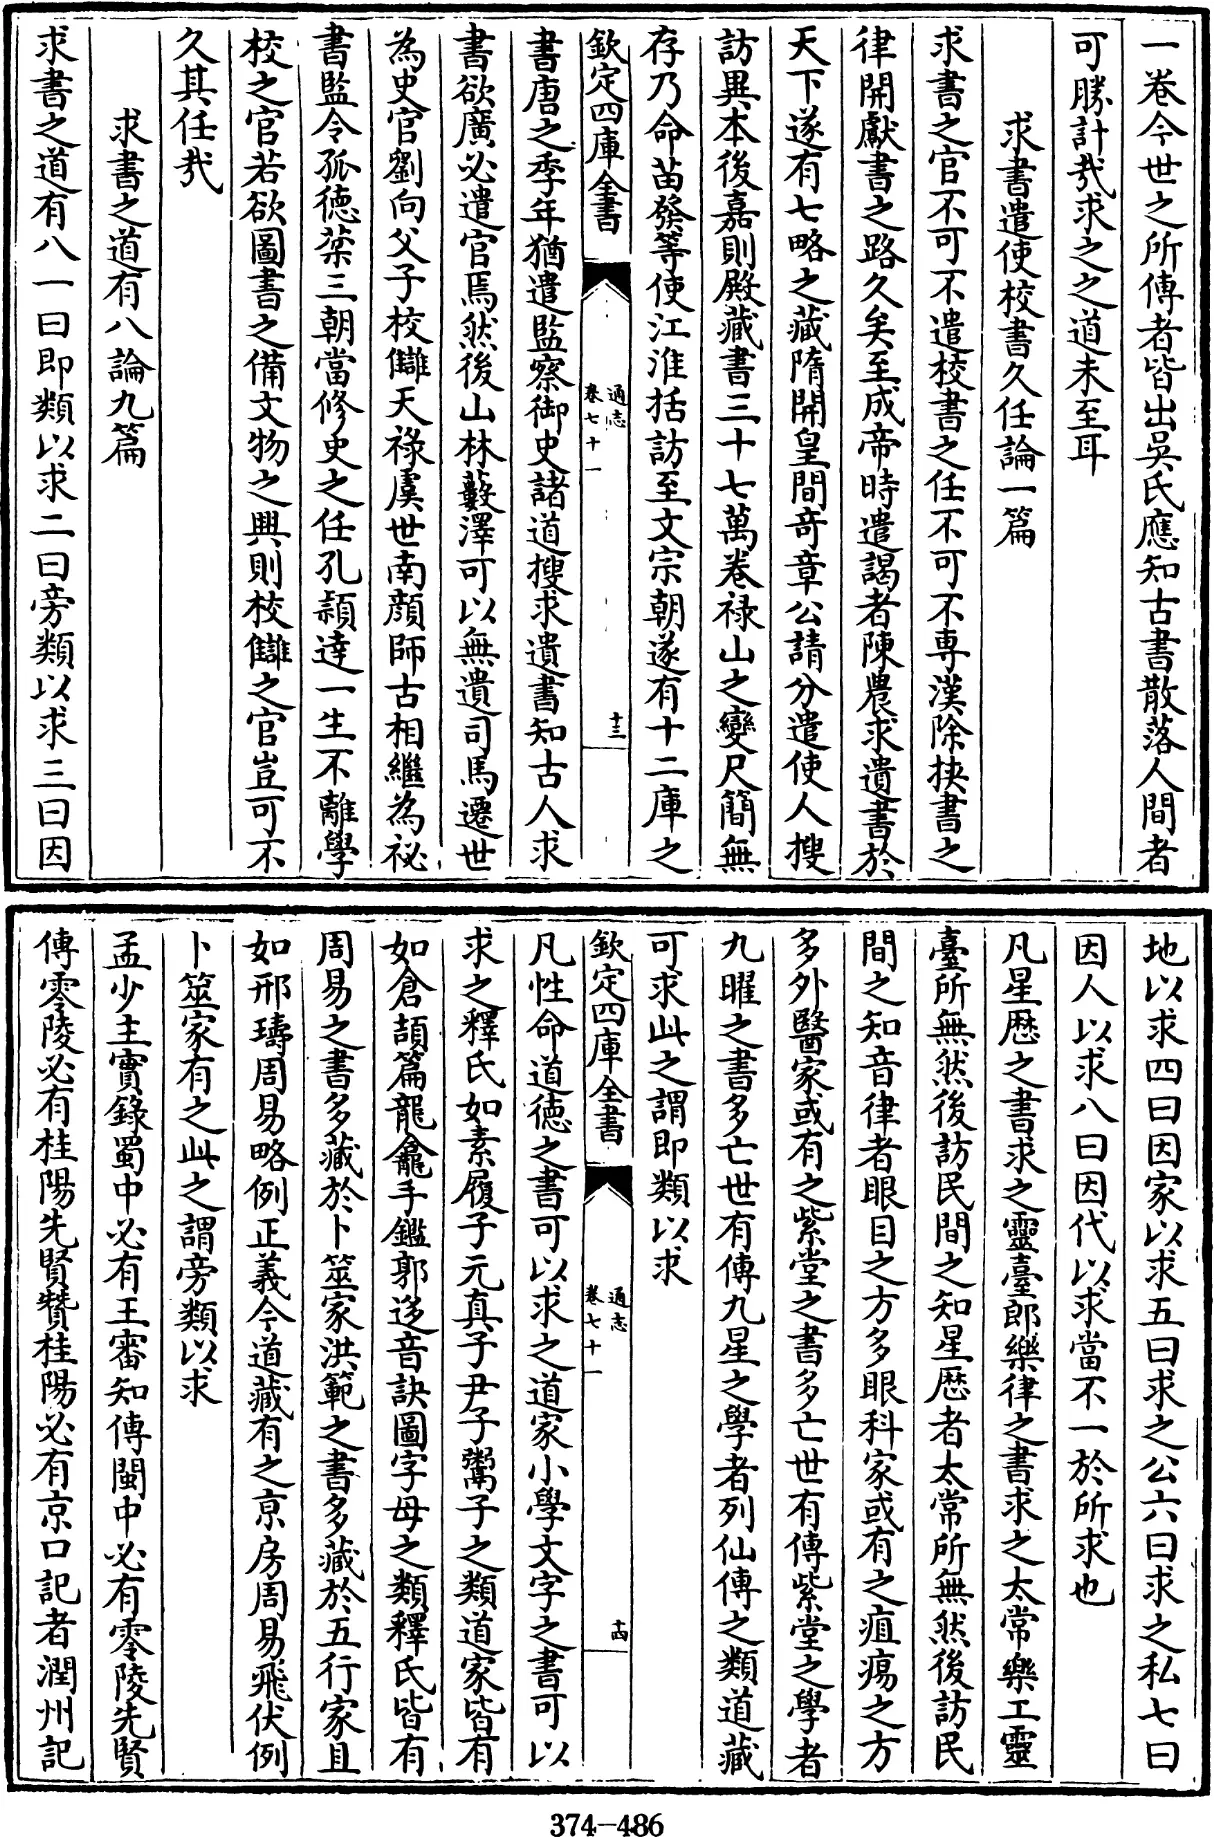 一卷今世之所傳者皆出吳氏應知古書散落人間者
可勝計哉求之之道未至耳
求書遣使校書久任論一篇
求書之官不可不遣校書之任不可不專漢除挾書之
律開獻書之路久矣至成帝時遣謁者陳農求遺書於
天下遂有七略之藏隋開皇間奇章公請分遣使人搜
訪異本後嘉則殿藏書三十七萬卷祿山之變尺簡無
存乃命苗發等使江淮括訪至文宗朝遂有十二庫之
欽定四庫全書
通志
卷七十一
十三
書唐之季年猶遣監察御史諸道搜求遺書知古人求
書欲廣必遣官焉然後山林藪澤可以無遺司馬遷世
為史官劉向父子校讎天祿虞世南顏師古相繼為祕
書監令狐德棻三朝當修史之任孔穎達一生不離學
校之官若欲圖書之備文物之興則校讎之官豈可不
久其任哉
求書之道有八論九篇
求書之道有八一曰即類以求二曰旁類以求三曰因
地以求四曰因家以求五曰求之公六曰求之私七曰
因人以求八曰因代以求當不一於所求也
凡星歷之書求之靈臺郎樂律之書求之太常樂工靈
臺所無然後訪民間之知星歷者太常所無然後訪民
間之知音律者眼目之方多眼科家或有之疽瘍之方
多外醫家或有之紫堂之書多亡世有傳紫堂之學者
九曜之書多亡世有傳九星之學者列仙傳之類道藏
可求此之謂即類以求
欽定四庫全書
通志
卷七十一
十四
凡性命道德之書可以求之道家小學文字之書可以
求之釋氏如素履子元真子尹子鬻子之類道家皆有
如倉頡篇龍龕手鑑郭迻音訣圖字母之類釋氏皆有
周易之書多藏於卜筮家洪範之書多藏於五行家且
如邢璹周易略例正義今道藏有之京房周易飛伏例
卜筮家有之此之謂旁類以求
孟少主實錄蜀中必有王審知傳閩中必有零陵先賢
傳零陵必有桂陽先賢贊桂陽必有京口記者潤州記
374-486